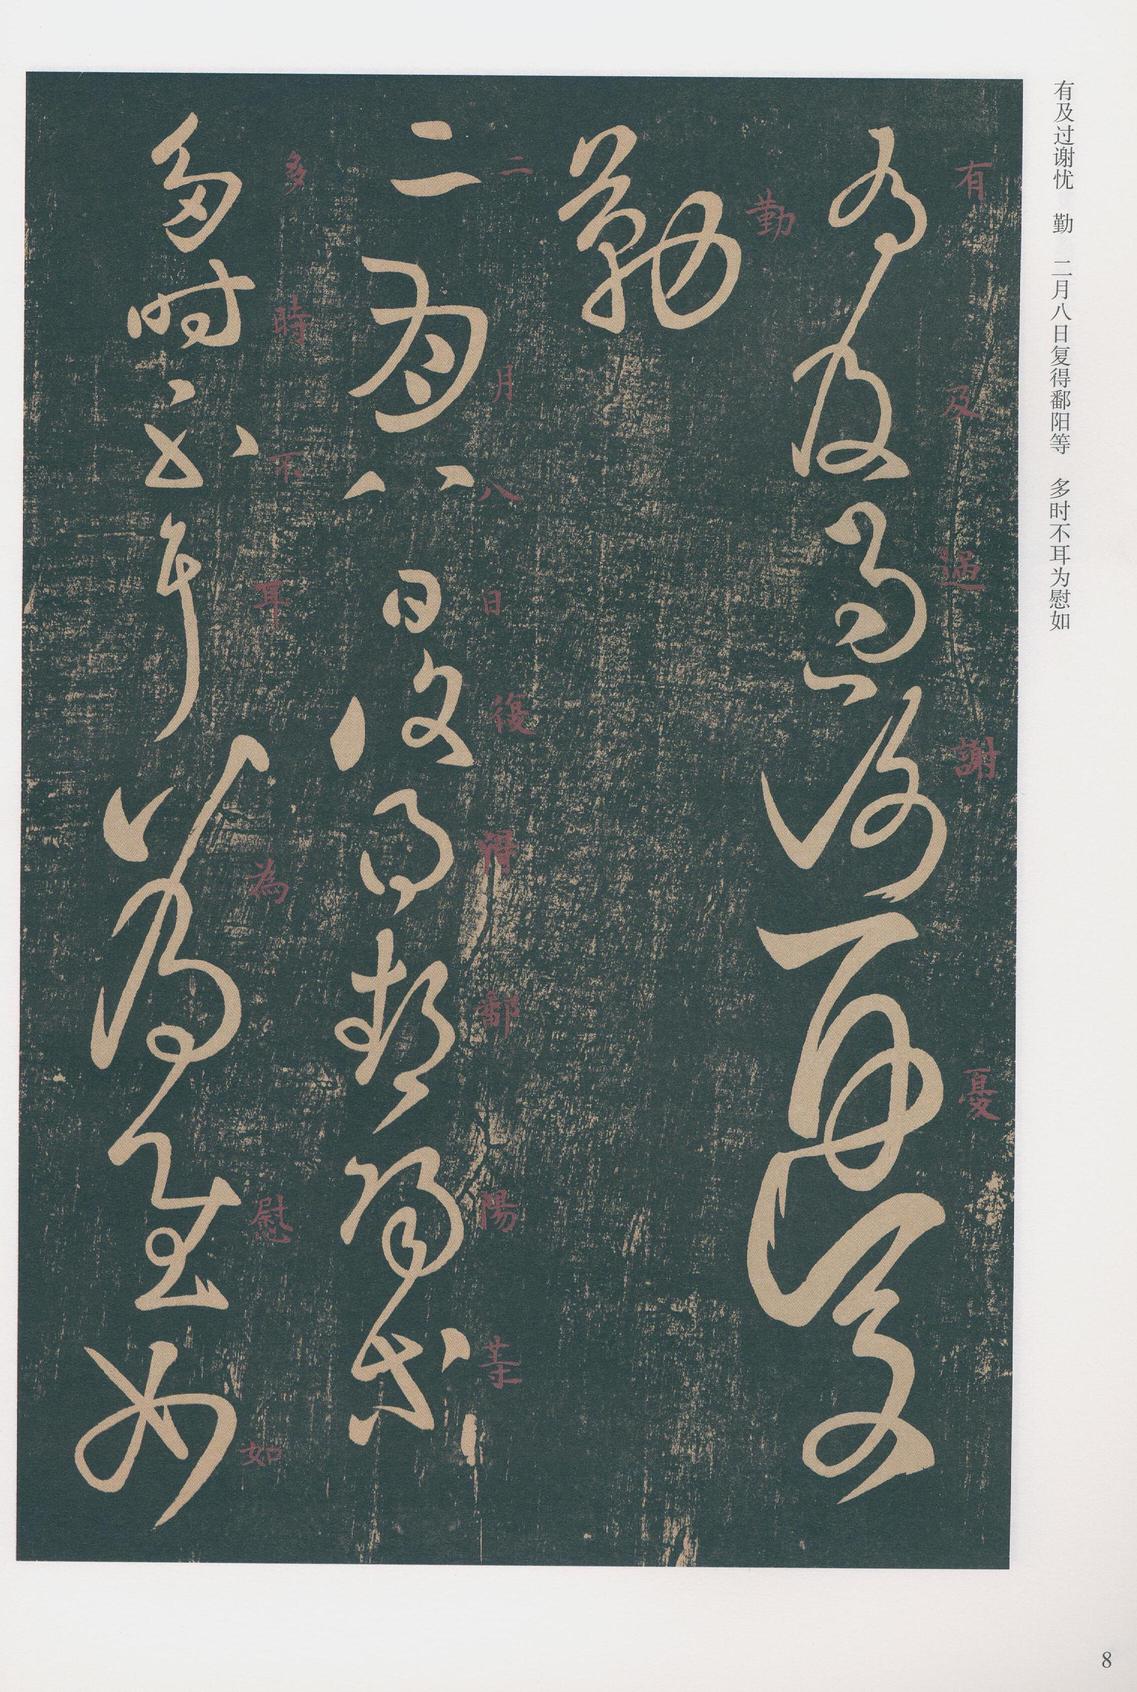 有及过谢忧　勤　二月八日复得鄱阳等　多时不耳为慰如
有及過謝憂
勤
二月八日復得鄱陽等
多時不耳為慰如
8